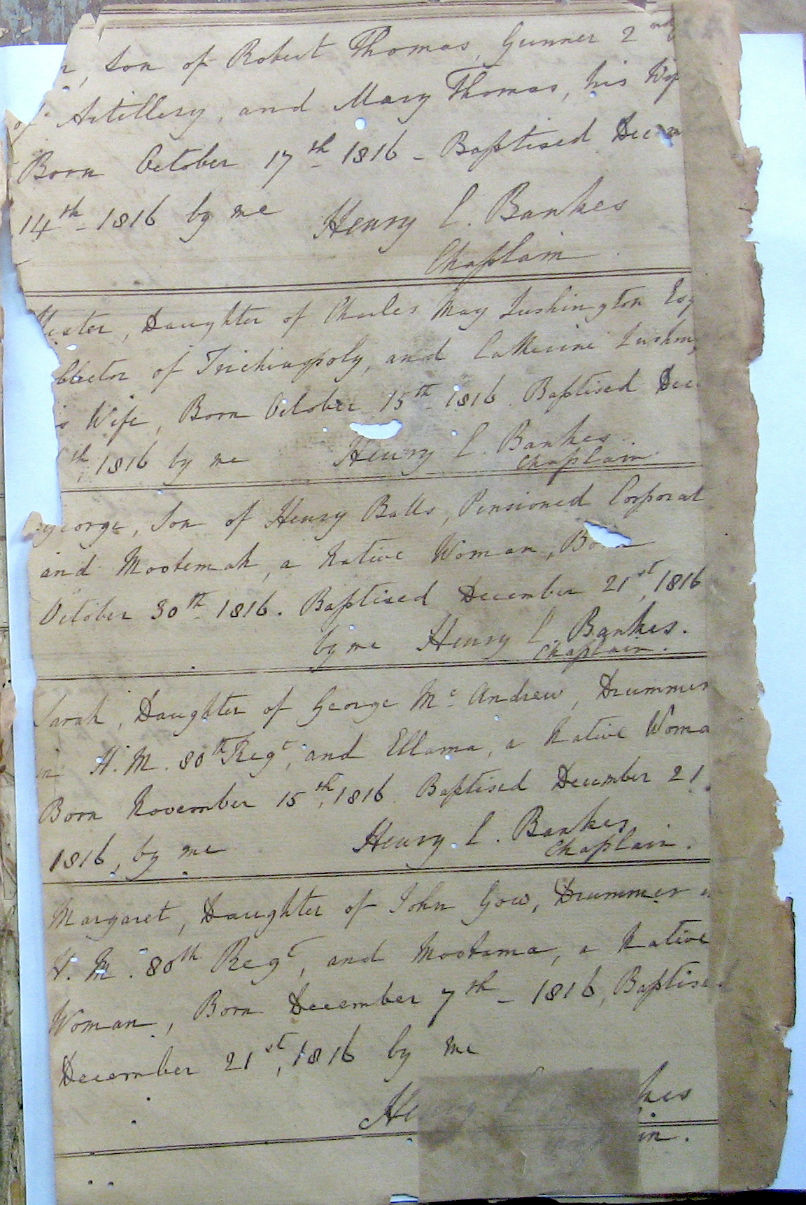 son of Robert Thomas, Gunner 2nd
of Artillery, and Mary Thomas, his
Born October 17th 1816 - Baptised
14th - 1816 by me Henry C. Bankes
Chaplain.
Daughter of Charles May Lushington Esq
of Trichinopoly, and Catherine
Wife, Born October 15th 1816. Baptised Dec
th 1816 by me Henry C. Bankes.
Chaplain.
George, Son of Henry Balls, Pensioned Corporal
and Mootemah, a Native Woman, Born
October 30th 1816. Baptised December 21st, 1816
by me Henry C. Bankes.
Chaplain.
Sarah, Daughter of George Mc Andrew, Drummer
in H. M. 80th Regt, and Ellama, a Native Woma
Born November 15th, 1816. Baptised December 21.
1816, by me Henry C. Bankes
Chaplain.
Margaret, Daughter of John Gow, Drummer
H. M. 80th Regt, and Mootama, a Native
Woman, Born December 7th - 1816, Baptised
December 21st, 1816 by me